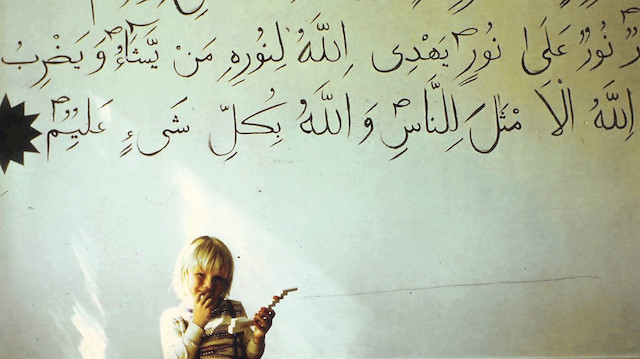 نُّورٌ عَلَىٰ نُورٍ يَهْدِى اللَّهُ لِنُورِهِ مَنْ يَّشَآءُ وَيَضْرِبُ
اللَّهُ الْاَمْثَالَ لِلنَّاسِ وَاللَّهُ بِكُلِّ شَىْءٍ عَلِيْمٌ